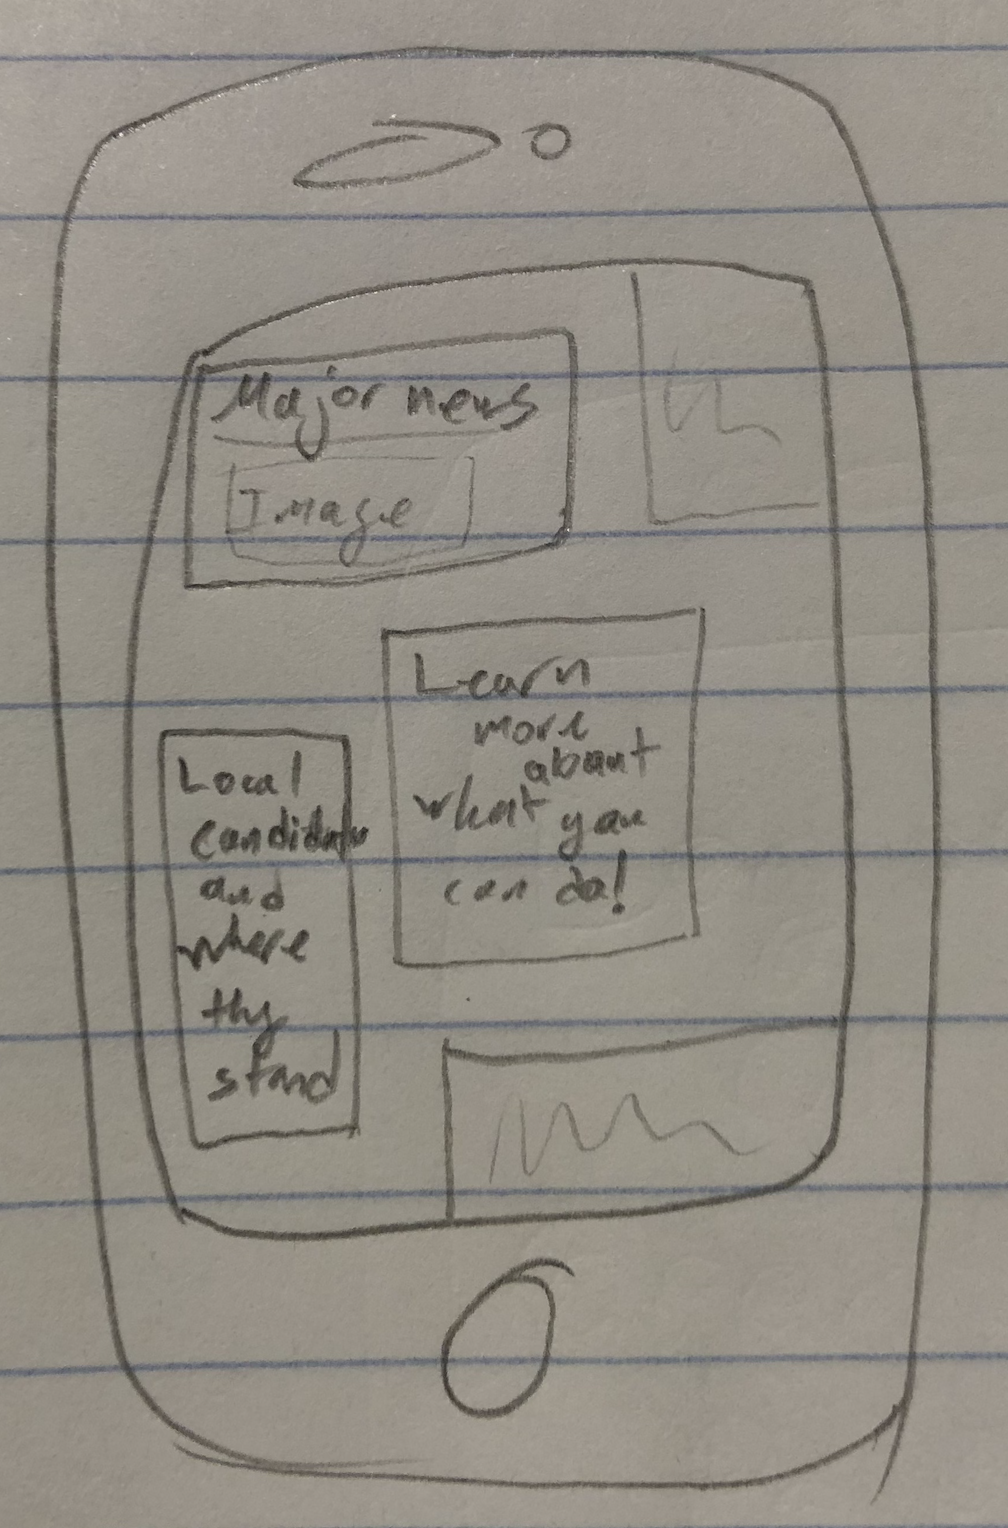 Major news
Image
Learn
more
about
what you
can do!
Local
candidate
and
where
thy
stand